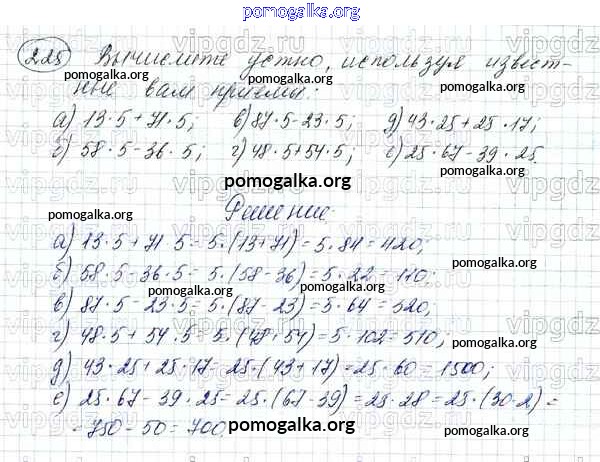 pomogalka.org
225 Вычислите устно, используя извест-
ные вам приёмы:
а) 13·5+71·5; в) 87·5-23·5; д) 43·25+25·17;
б) 58·5-36·5; г) 48·5+54·5; е) 25·67-39·25.
Решение:
а) 13·5+71·5=5·(13+71)=5·84=420;
б) 58·5-36·5=5·(58-36)=5·22=110;
в) 87·5-23·5=5·(87-23)=5·64=320;
г) 48·5+54·5=5·(48+54)=5·102=510;
д) 43·25+25·17=25·(43+17)=25·60=1500;
е) 25·67-39·25=25·(67-39)=25·28=25·(30-2)=
=750-50=700.
pomogalka.org